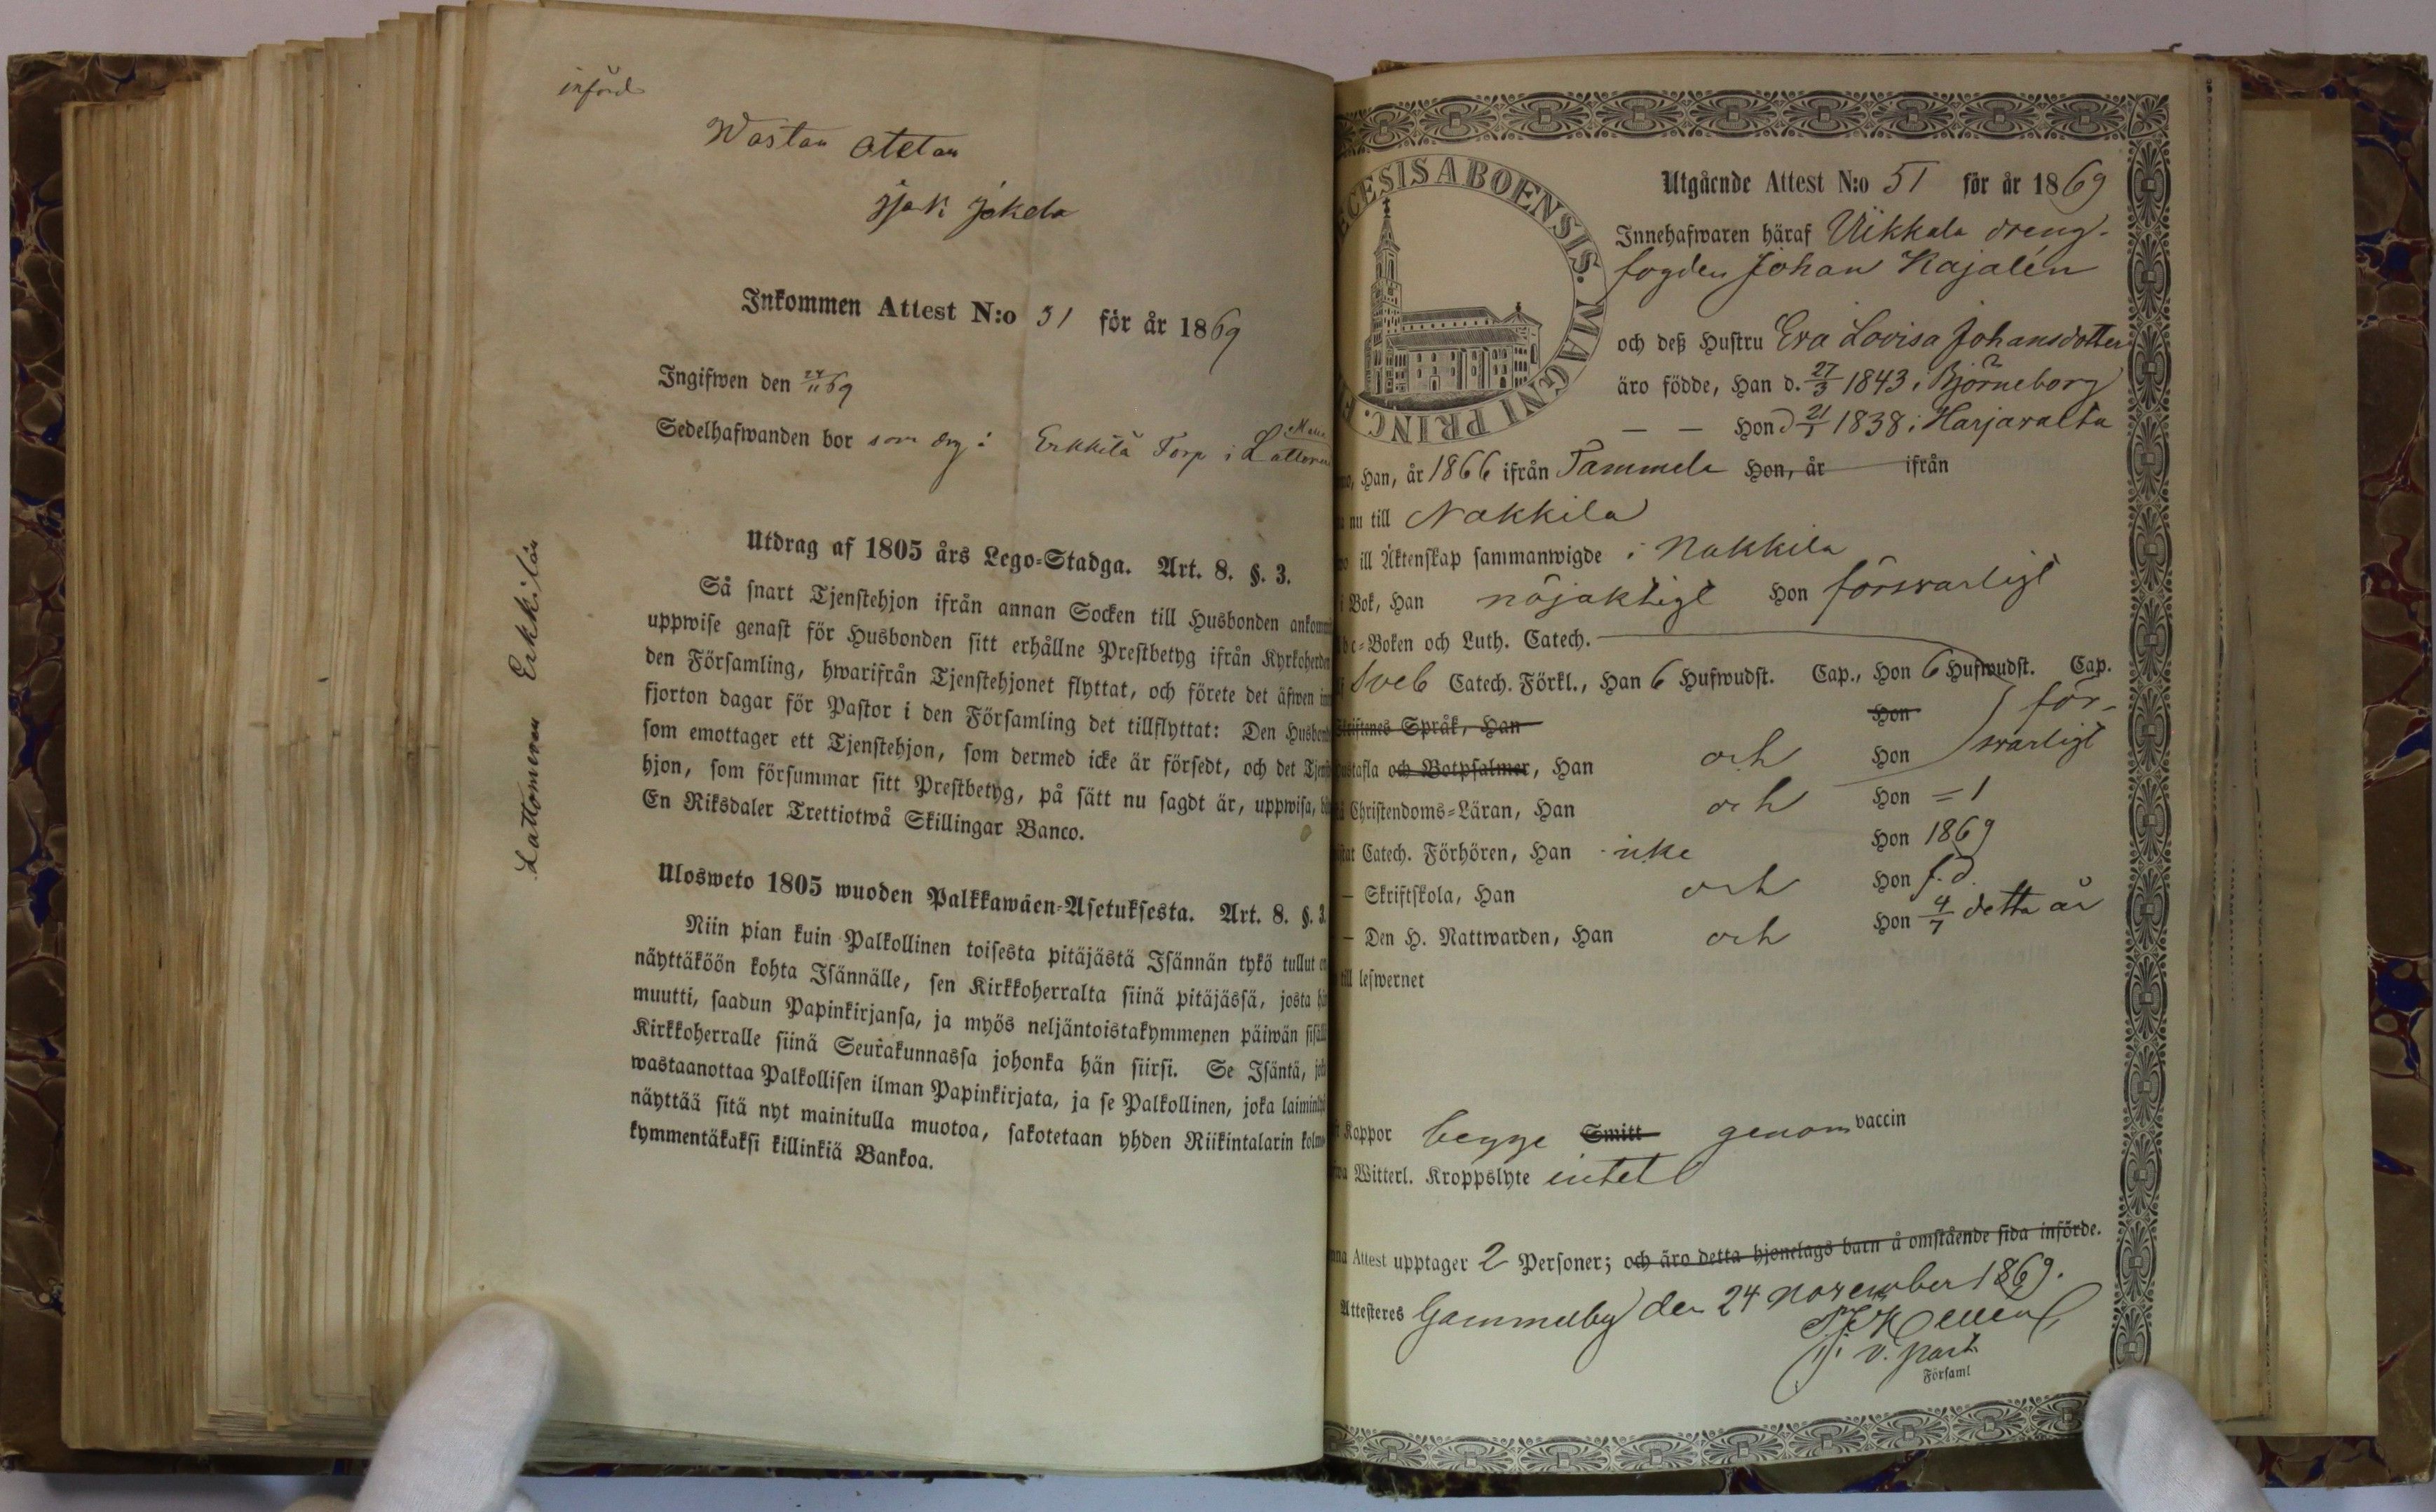 införd
Wastan otetan
Jjak: Jokela
Inkommen Attest N:o 51 för år 1869
Ingifwen den 24/11 69
Sedelhafwanden bor som drg i Erkkilä Torp i
Lattomeren Erkkilän
Utdrag af 1805 års Lego-Stadga. Art. 8. §. 3.
Så snart Tjenstehjon ifrån annan Socken till Husbonden
uppwise genast för Husbonden sitt erhållne Prestbetyg ifrån Kyrkoherden
den Församling, hwarifrån Tjenstehjonet flyttat, och förete det äfwen
fjorton dagar för Pastor i den Församling det tillflyttat: Den
som emottager ett Tjenstehjon, som dermed icke är försedt, och det
hjon, som försummar sitt Prestbetyg, på sätt nu sagdt är, uppwisa,
En Riksdaler Trettiotwå Skillingar Banco.
Ulosweto 1805 wuoden Palkkawäen-Asetuksesta. Art. 8. §. 3.
Niin pian kuin Palkollinen toisesta pitäjästä Isännän tykö tullut
näyttäköön kohta Isännälle, sen Kirkkoherralta siinä pitäjässä, josta
muutti, saadun Papinkirjansa, ja myös neljäntoistakymmenen päiwän
Kirkkoherralle siinä Seurakunnassa johonka hän siirsi. Se Isäntä,
wastaanottaa Palkollisen ilman Papinkirjata, ja se Palkollinen, joka
näyttää sitä nyt mainitulla muotoa, sakotetaan yhden Riikintalarin
kymmentäkaksi killinkiä Bankoa.
CESIS ABOENSIS. MAGNI PRINC. F
Utgående Attest N:o 51 för år 1869
Innehafwaren häraf Uikkala dreng-
fogden Johan Kajalén
och deß Hustru Eva Lovisa Johansdotter
äro födde, Han d. 27/3 1843 i Björneborg
— — Hon d 21/1 1838 i Harjavalta
Han, år 1866 ifrån Tammela Hon, år ifrån
nu till Nakkila
ill Äktenskap sammanwigde i Nakkila
Bok, Han nöjaktigt Hon försvarligt
Boken och Luth. Catech.
Sveb Catech. Förkl., Han 6 Hufwudst. Cap., Hon 6 Hufwudst. Cap.
Språk, Han Hon för-
och Botpsalmer, Han och Hon svarligt
Christendoms-Läran, Han och Hon = 1
Catech. Förhören, Han icke Hon 1869
— Skriftskola, Han och Hon f. d.
— Den H. Nattwarden, Han och Hon 4/7 detta år
till lefwernet
Koppor begge Smitt genom vaccin
Witterl. Kroppslyte intet
Attest upptager 2 Personer; och äro detta hjonelags barn å omstående sida införde.
Attesteres Gammelby den 24 november 1869.
v. past.
Församl